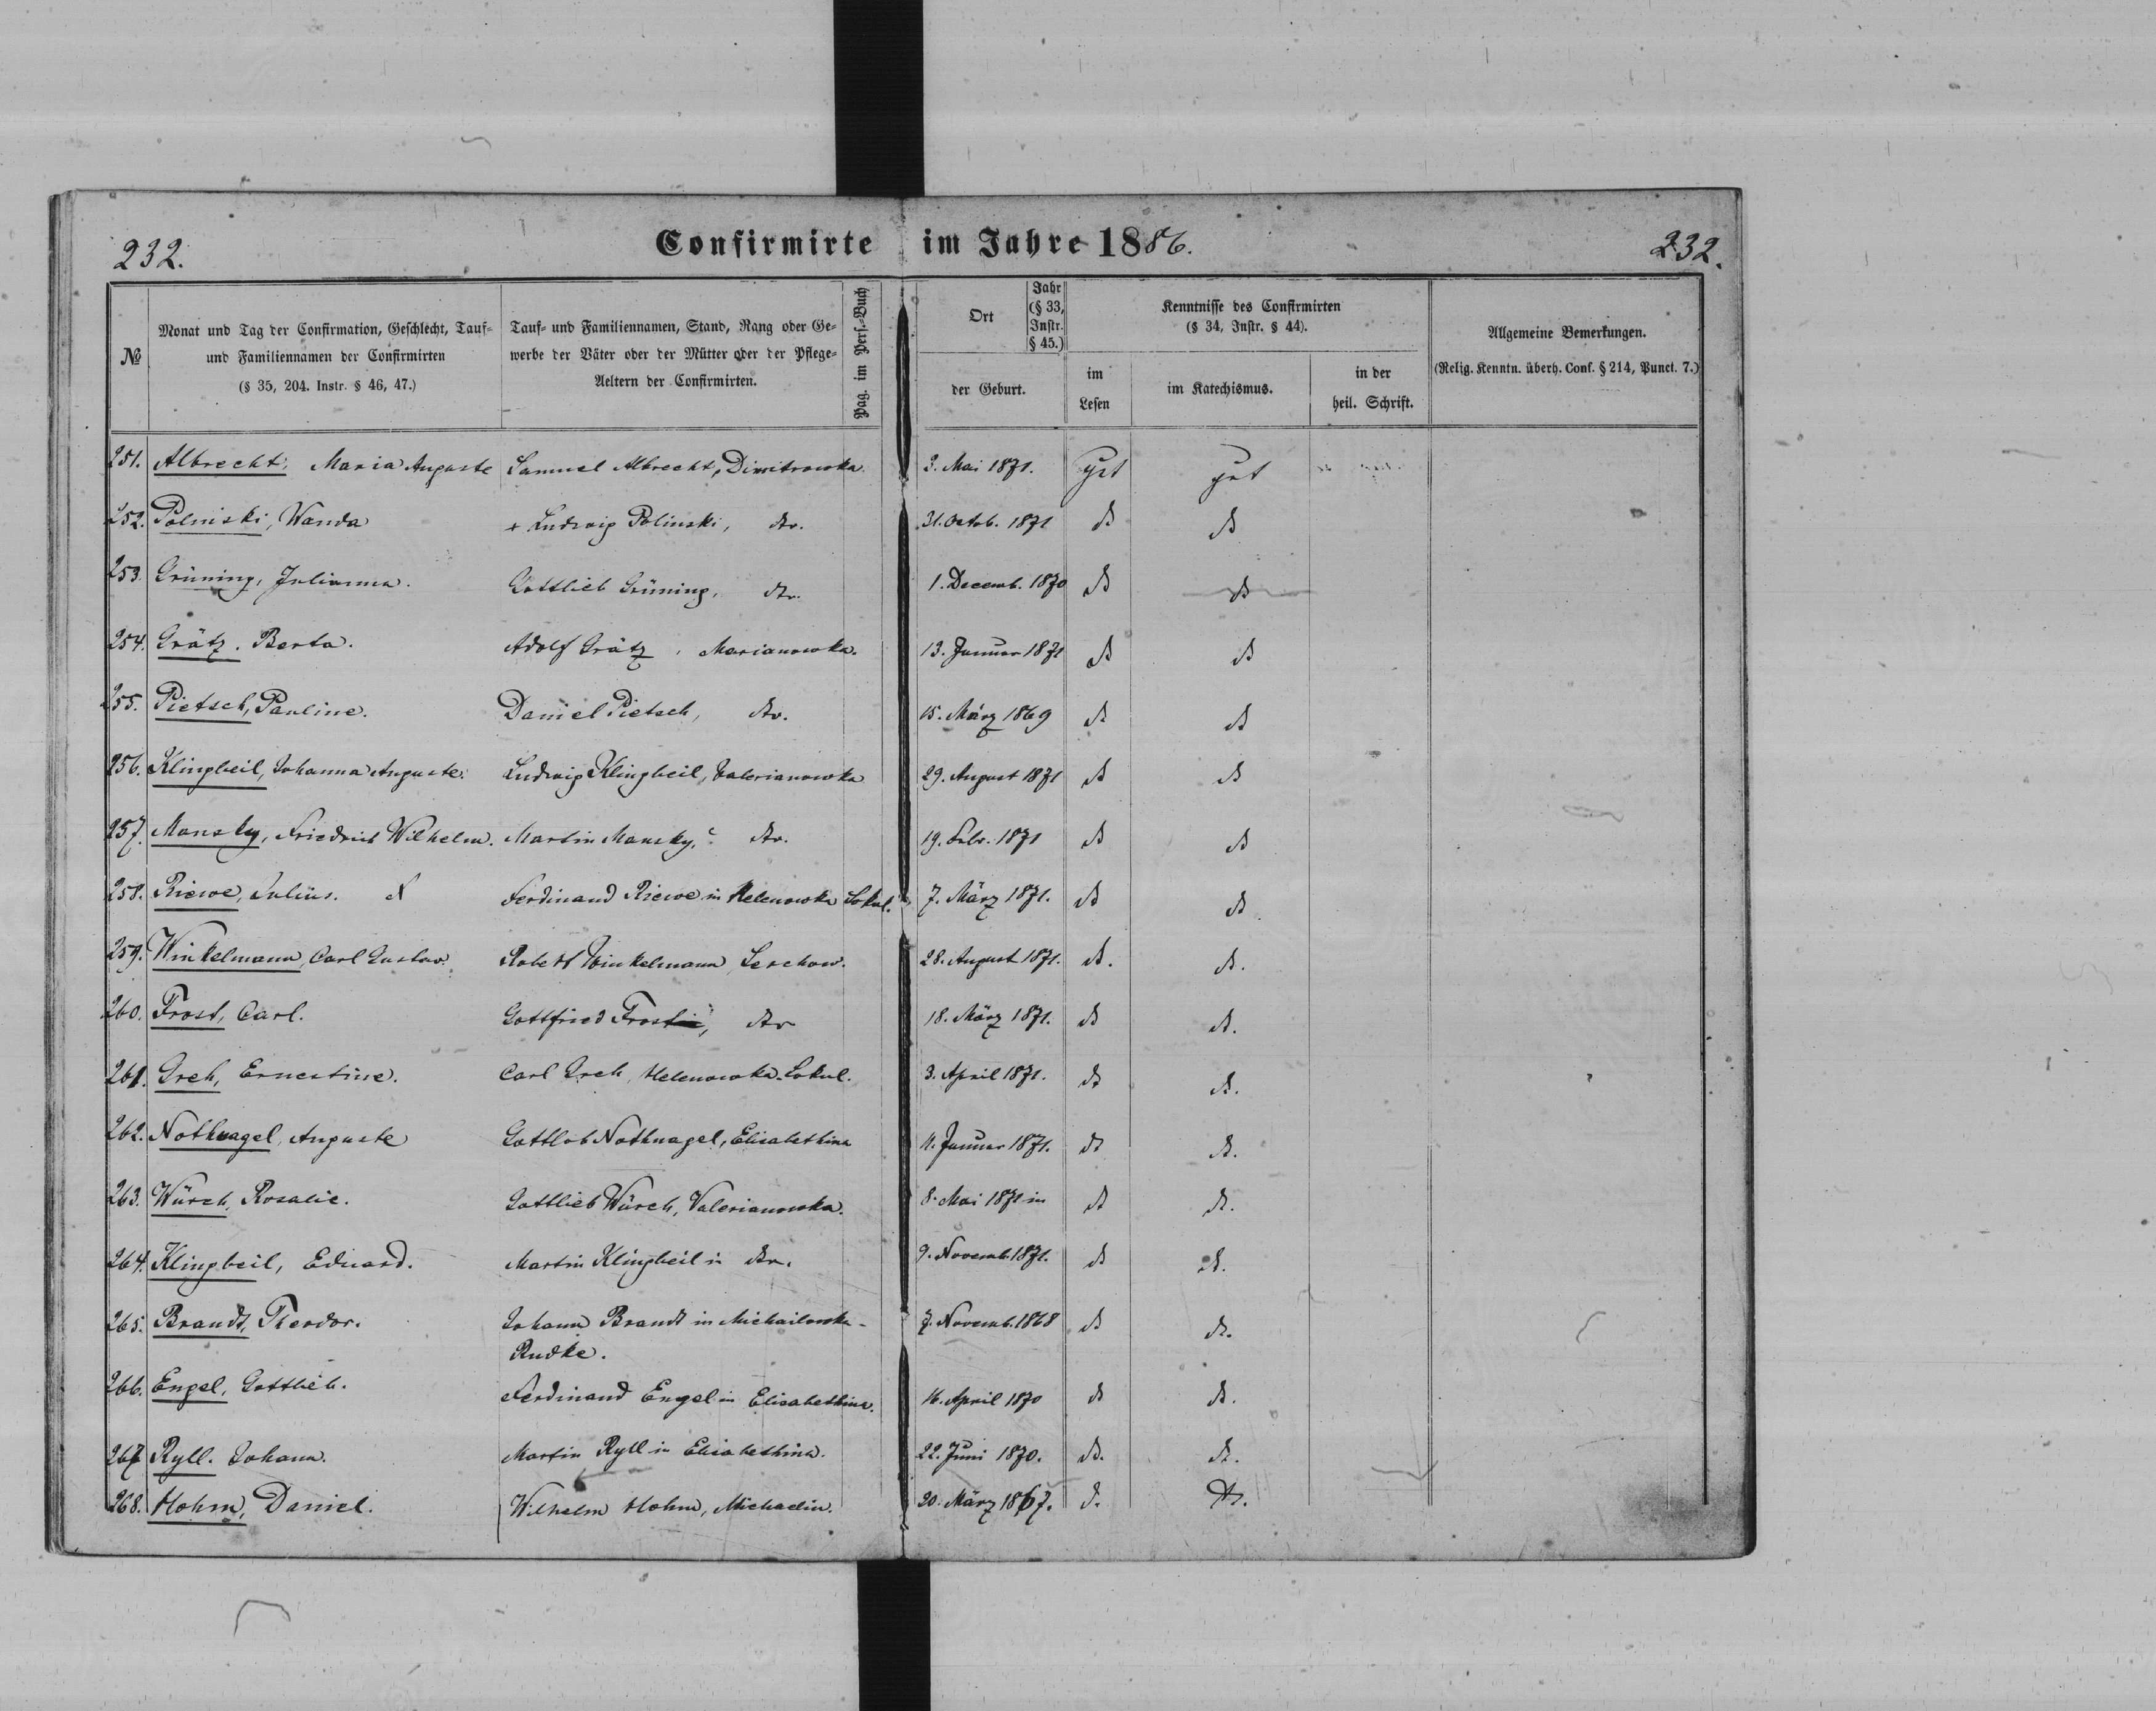 232.
Confirmirte im Jahre 1886.
232.
№
Monat und Tag der Confirmation, Geschlecht, Tauf-
und Familiennamen der Confirmirten
(§ 35, 204. Instr. § 46, 47.)
Tauf- und Familiennamen, Stand, Rang oder Ge-
werbe der Väter oder der Mütter oder der Pflege-
Aeltern der Confirmirten.
Pag. im Pers.-Buch
Ort
Jahr
(§ 33,
Instr.
§ 45.)
der Geburt.
Kenntnisse des Confirmirten
(§ 34, Instr. § 44).
im
Lesen
im Katechismus.
in der
heil. Schrift.
Allgemeine Bemerkungen.
(Relig. Kenntn. überh. Conf. § 214, Punct. 7.)
251. Albrecht, Maria Auguste Samuel Albrecht, Dimitrowka. 3. Mai 1871. gut gut
252. Polniski, Wanda + Ludwig Polinski, do. 31. Octob. 1871 do do
253. Grüning, Julianna. Gottlieb Grüning, do. 1. Decemb. 1870 do do
254. Grätz. Berta. Adolf Grätz, Marianowka. 13. Januar 1871 do do
255. Pietsch, Pauline. Daniel Pietsch, do. 15. März 1869 do do
256. Klingbeil, Johanna Auguste. Ludwig Klingbeil, Valerianowka 29. August 1871 do do
257. Mansky, Friedrich Wilhelm. Martin Mansky, do. 19. Febr. 1871 do do
258. Riewe, Julius. Ferdinand Riewe in Helenowka Lokul. 7. März 1871. do do
259. Winkelmann, Carl Gustav. Robert Winkelmann Serchow. 28. August 1871. do. do.
260. Frost, Carl. Gottfried Frost, do 18. März 1871. do do.
261. Greh, Ernestine. Carl Greh, Helenowka-Lokul. 3. April 1871. do do.
262. Nothnagel, Auguste Gottlob Nothnagel, Elisabethina 11. Januar 1871. do do.
263. Würch, Rosalie. Gottlieb Würch, Valerianowka. 8. Mai 1871 in do do.
264. Klingbeil, Eduard. Martin Klingbeil in do. 9. Novemb. 1871. do do.
265. Brandt, Theodor. Johann Brandt in Michailowka- 7. Novemb. 1868 do do.
Rudke.
266. Engel, Gottlieb. Ferdinand Engel in Elisabethina. 16. April 1870 do do.
267 Ryll. Johann. Martin Ryll in Elisabethina. 22. Juni 1870. do. do.
268. Hohm, Daniel. Wilhelm Hohm, Michaelin. 20. März 1867. do. do.